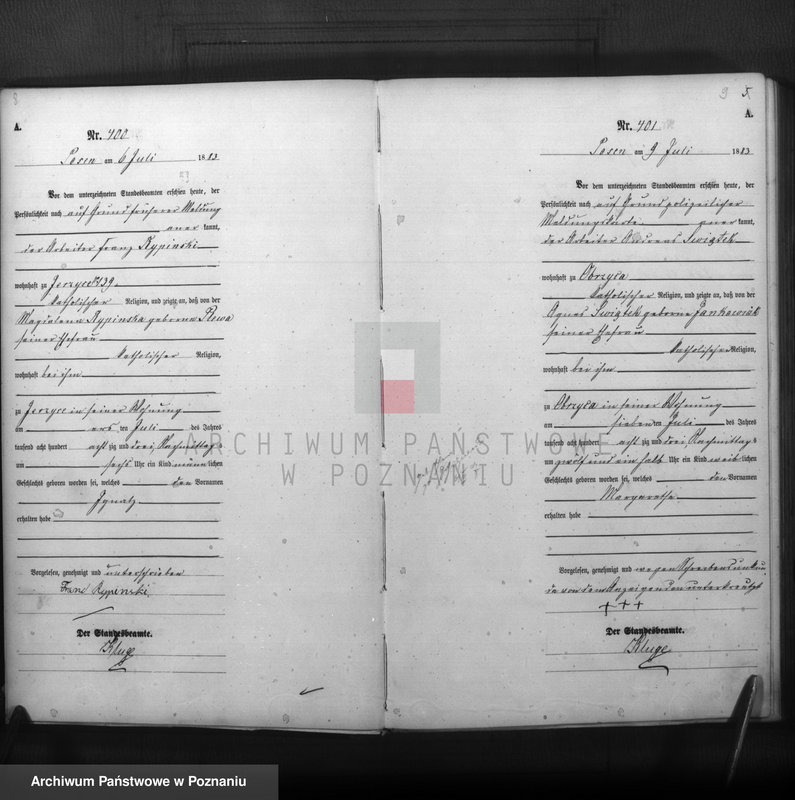 8
A.
Nr. 400
Posen am 6 Juli 1883
Vor dem unterzeichneten Standesbeamten erschien heute, der
Persönlichkeit nach auf Grund früherer Meldung
aner kannt,
der Arbeiter Franz Rypinski
wohnhaft zu Jerzyce № 39.
katholischer Religion, und zeigte an, daß von der
Magdalena Rypinska geborne Plewa
seiner Ehefrau
katholischer Religion,
wohnhaft bei ihm
zu Jerzyce in seiner Wohnung
am ers ten Juli des Jahres
tausend acht hundert acht zig und drei Nachmittags
um sechs Uhr ein Kind männ lichen
Geschlechts geboren worden sei, welches den Vornamen
Ignatz
erhalten habe
Vorgelesen, genehmigt und unterschrieben
Franz Rypinski
Der Standesbeamte.
Kluge
9 5
A.
Nr. 401
Posen am 9 Juli 1883
Vor dem unterzeichneten Standesbeamten erschien heute, der
Persönlichkeit nach auf Grund polizeilicher
Meldungskarte aner kannt,
der Arbeiter Andreas Swiątek
wohnhaft zu Obrzyca
katholischer Religion, und zeigte an, daß von der
Agnes Swiątek geborne Jankowiak
seiner Ehefrau
katholischer Religion,
wohnhaft bei ihm
zu Obrzyca in seiner Wohnung
am sieben ten Juli des Jahres
tausend acht hundert acht zig und drei Nachmittags
um zwölf und ein halb Uhr ein Kind weib lichen
Geschlechts geboren worden sei, welches den Vornamen
Margarethe
erhalten habe
Vorgelesen, genehmigt und wegen Schreibensunkun
de von dem Anzeigenden unterkreuzt
+++
Der Standesbeamte.
Kluge
ARCHIWUM PAŃSTWOWE
W POZNANIU
Archiwum Państwowe w Poznaniu